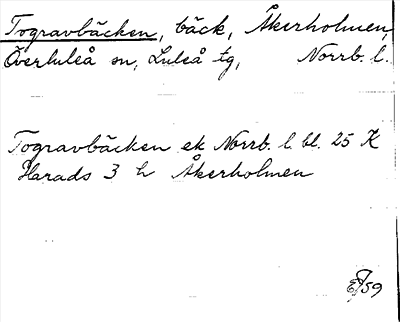 Togravbäcken, bäck, Åkerholmen,
Överluleå sn, Luleå tg, Norrb. l.
Togravbäcken ek Norrb. l bl. 25 K
Harads 3 h Åkerholmen
59